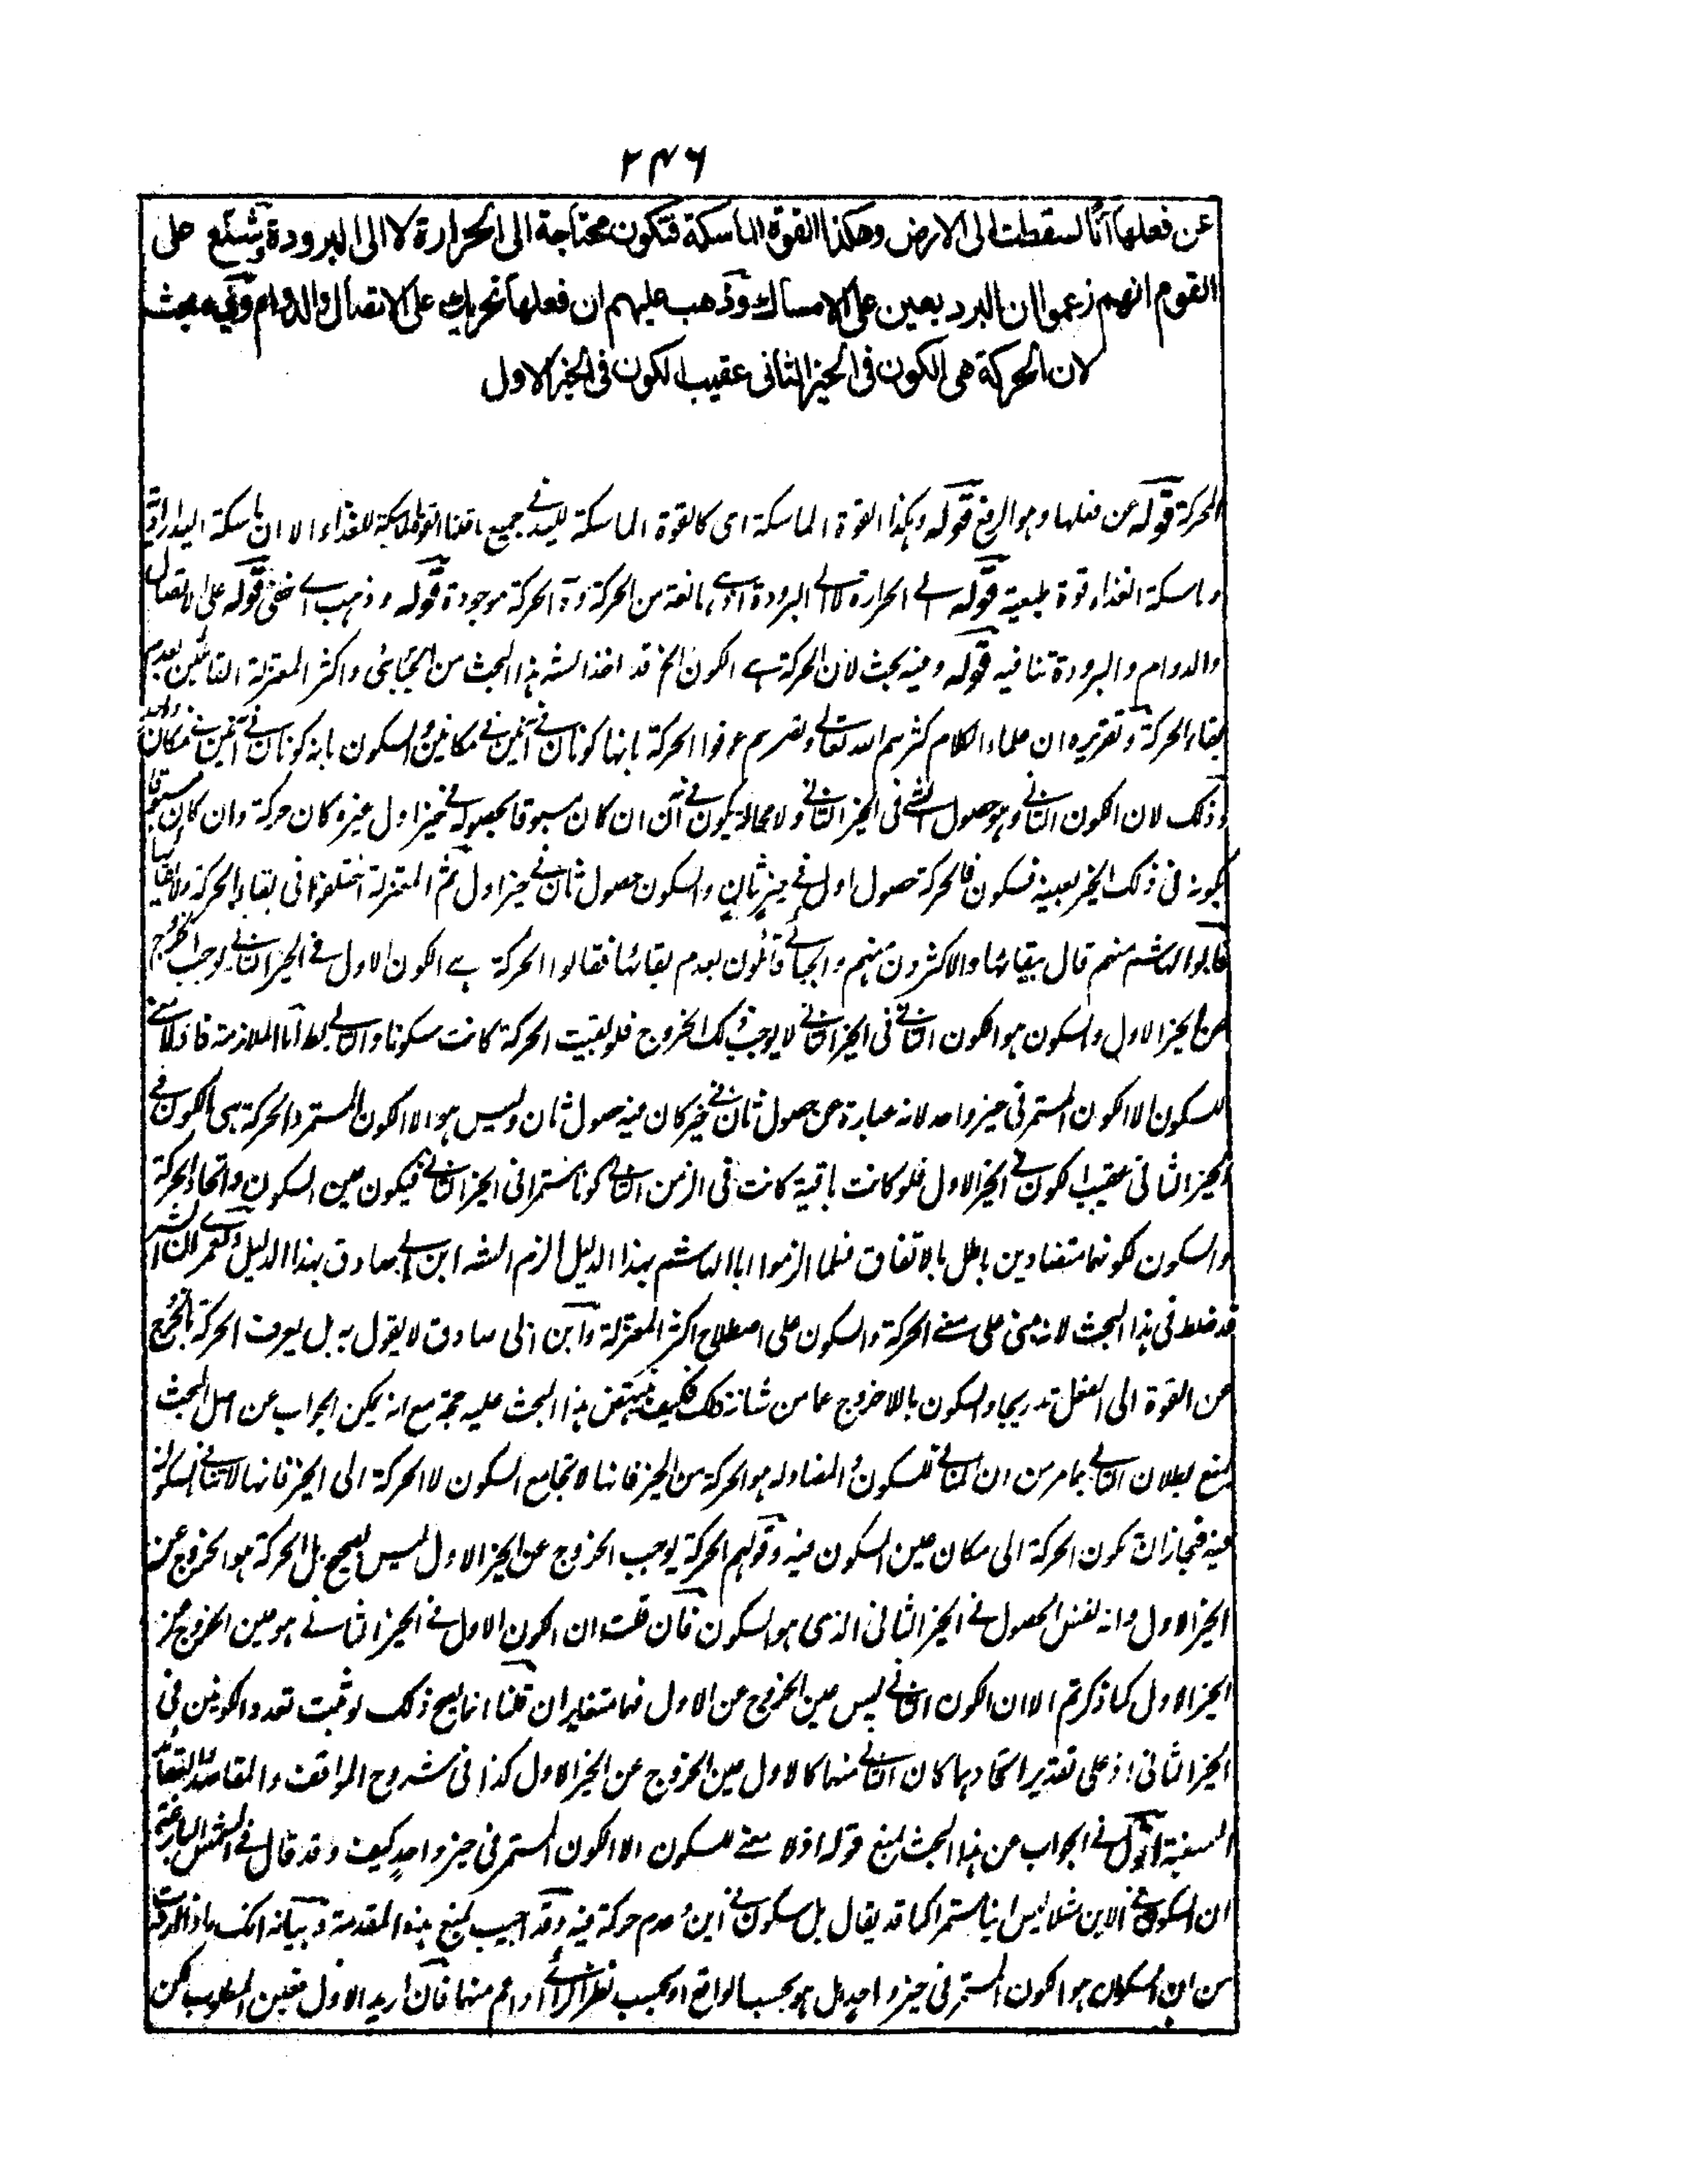 ۲۴۶
عن فعلها آنًا لسقطت الى الارض وهكذا القوة الماسكة فتكون محتاجة الى الحرارة لا الى البرودة ويشنّع على
القوم انهم زعموا ان البرد يعين على الامساك وذهب عليهم ان فعلها تحريك على الاتصال والدوام وفيه بحث
لان الحركة هى الكون فى الحيز الثانى عقيب الكون فى الحيز الاول
الحركة قوله عن فعلها وهو الرفع قوله وهكذا القوة الماسكة اى كالقوة الماسكة لليد فى جميع ما قلنا القوة الماسكة للغذاء الا ان ماسكة اليد
وماسكة الغذاء قوة طبعية قوله الى الحرارة لا الى البرودة اذ هى مانعة من الحركة وة الحركة موجودة قوله وذهب اى خفى قوله على الاتصال
والدوام والبرودة تنافيه قوله وفيه بحث لان الحركة هى الكون الخ قد اخذ الشه هذا البحث من الجبائى واكثر المعتزلة القائلين بعدم
بقاء الحركة وتقريره ان علماء الكلام كثرهم الله تعالى ونصرهم عرفوا الحركة بانها كونان فى آنين فى مكانين والسكون بانه كونان فى آنين فى مكان واحد
وذلك لان الكون الثانى وهو حصول الشئ فى الحيز الثانى ولا محالة يكون فى آن ان كان مسبوقا بحصوله فى حيز اول غيره كان حركة وان كان مسبوقا
بكونه فى ذلك الحيز بعينه فسكون فالحركة حصول اول فى حيز ثان والسكون حصول ثان فى حيز اول ثم المعتزلة اختلفوا فى بقاء الحركة
فابو الهاشم منهم قال ببقائها والاكثرون منهم والجبائى قائلون بعدم بقائها فقالوا الحركة هى الكون الاول فى الحيز الثانى يوجب الخروج
عن الحيز الاول والسكون هو الكون الثانى فى الحيز الثانى لا يوجب ذلك الخروج فلو بقيت الحركة كانت سكونا والتالى بط اما الملازمة فاذ لا معنى
للسكون الا الكون المستمر فى حيز واحد لانه عبارة عن حصول ثان فى حيز كان فيه حصول ثان وليس هو الا الكون المستمر والحركة هى الكون فى
الحيز الثانى عقيب الكون فى الحيز الاول فلو كانت باقية كانت فى الزمن الثانى كونا مستمرا فى الحيز الثانى فيكون عين السكون واتحاد الحركة
والسكون لكونهما متضادين باطل بالاتفاق فلما الزموا ابا الهاشم بهذا الدليل الزم الشه ابن ابى صادق بهذا الدليل ولعمرى ان الشه
قد خلط فى هذا البحث لانه مبنى على معنى الحركة والسكون على اصطلاح اكثر المعتزلة وابن ابى صادق لا يقول به بل يعرف الحركة بالخروج
من القوة الى الفعل تدريجا والسكون بالاخروج عما من شانه ذلك فكيف ينتهض هذا البحث عليه حجة مع انه يمكن الجواب عن اصل البحث
بمنع بطلان التالى بما مر من ان المنافى للسكون والمضاد له هو الحركة من الحيز فانها لا تجامع السكون لا الحركة الى الحيز فانها لا تنافى السكون
فيه فجاز ان تكون الحركة الى مكان عين السكون فيه وقولهم الحركة يوجب الخروج عن الحيز الاول ليس بصحيح بل الحركة هو الخروج عن
الحيز الاول وانه نفس الحصول فى الحيز الثانى الذى هو السكون فان قلت ان الكون الاول فى الحيز الثانى هو عين الخروج عن
الحيز الاول كما ذكرتم الا ان الكون الثانى ليس عين الخروج عن الاول فهما متغايران قلنا انما يصح ذلك لو ثبت تعدد الكونين فى
الحيز الثانى اذ على تقدير اتحادهما كان الثانى منهما كالاول عين الخروج عن الحيز الاول كذا فى شروح المواقف والمقاصد
اقول فى الجواب عن هذا البحث بمنع قوله اذ لا معنى للسكون الا الكون المستمر فى حيز واحد كيف وقد قال فى الشمس البازغة
ان السكون فى الاين مثلا ليس اينا مستمرا كما قد يقال بل سكون فى اين وعدم حركة فيه وقد اجيب بمنع هذه المقدمة وبيانه انك ماذا اردت
من ان السكون هو الكون المستمر فى حيز واحد هل هو بحسب الواقع او بحسب نظر الرائى او اعم منهما فان اريد الاول فعين المطلوب لكن